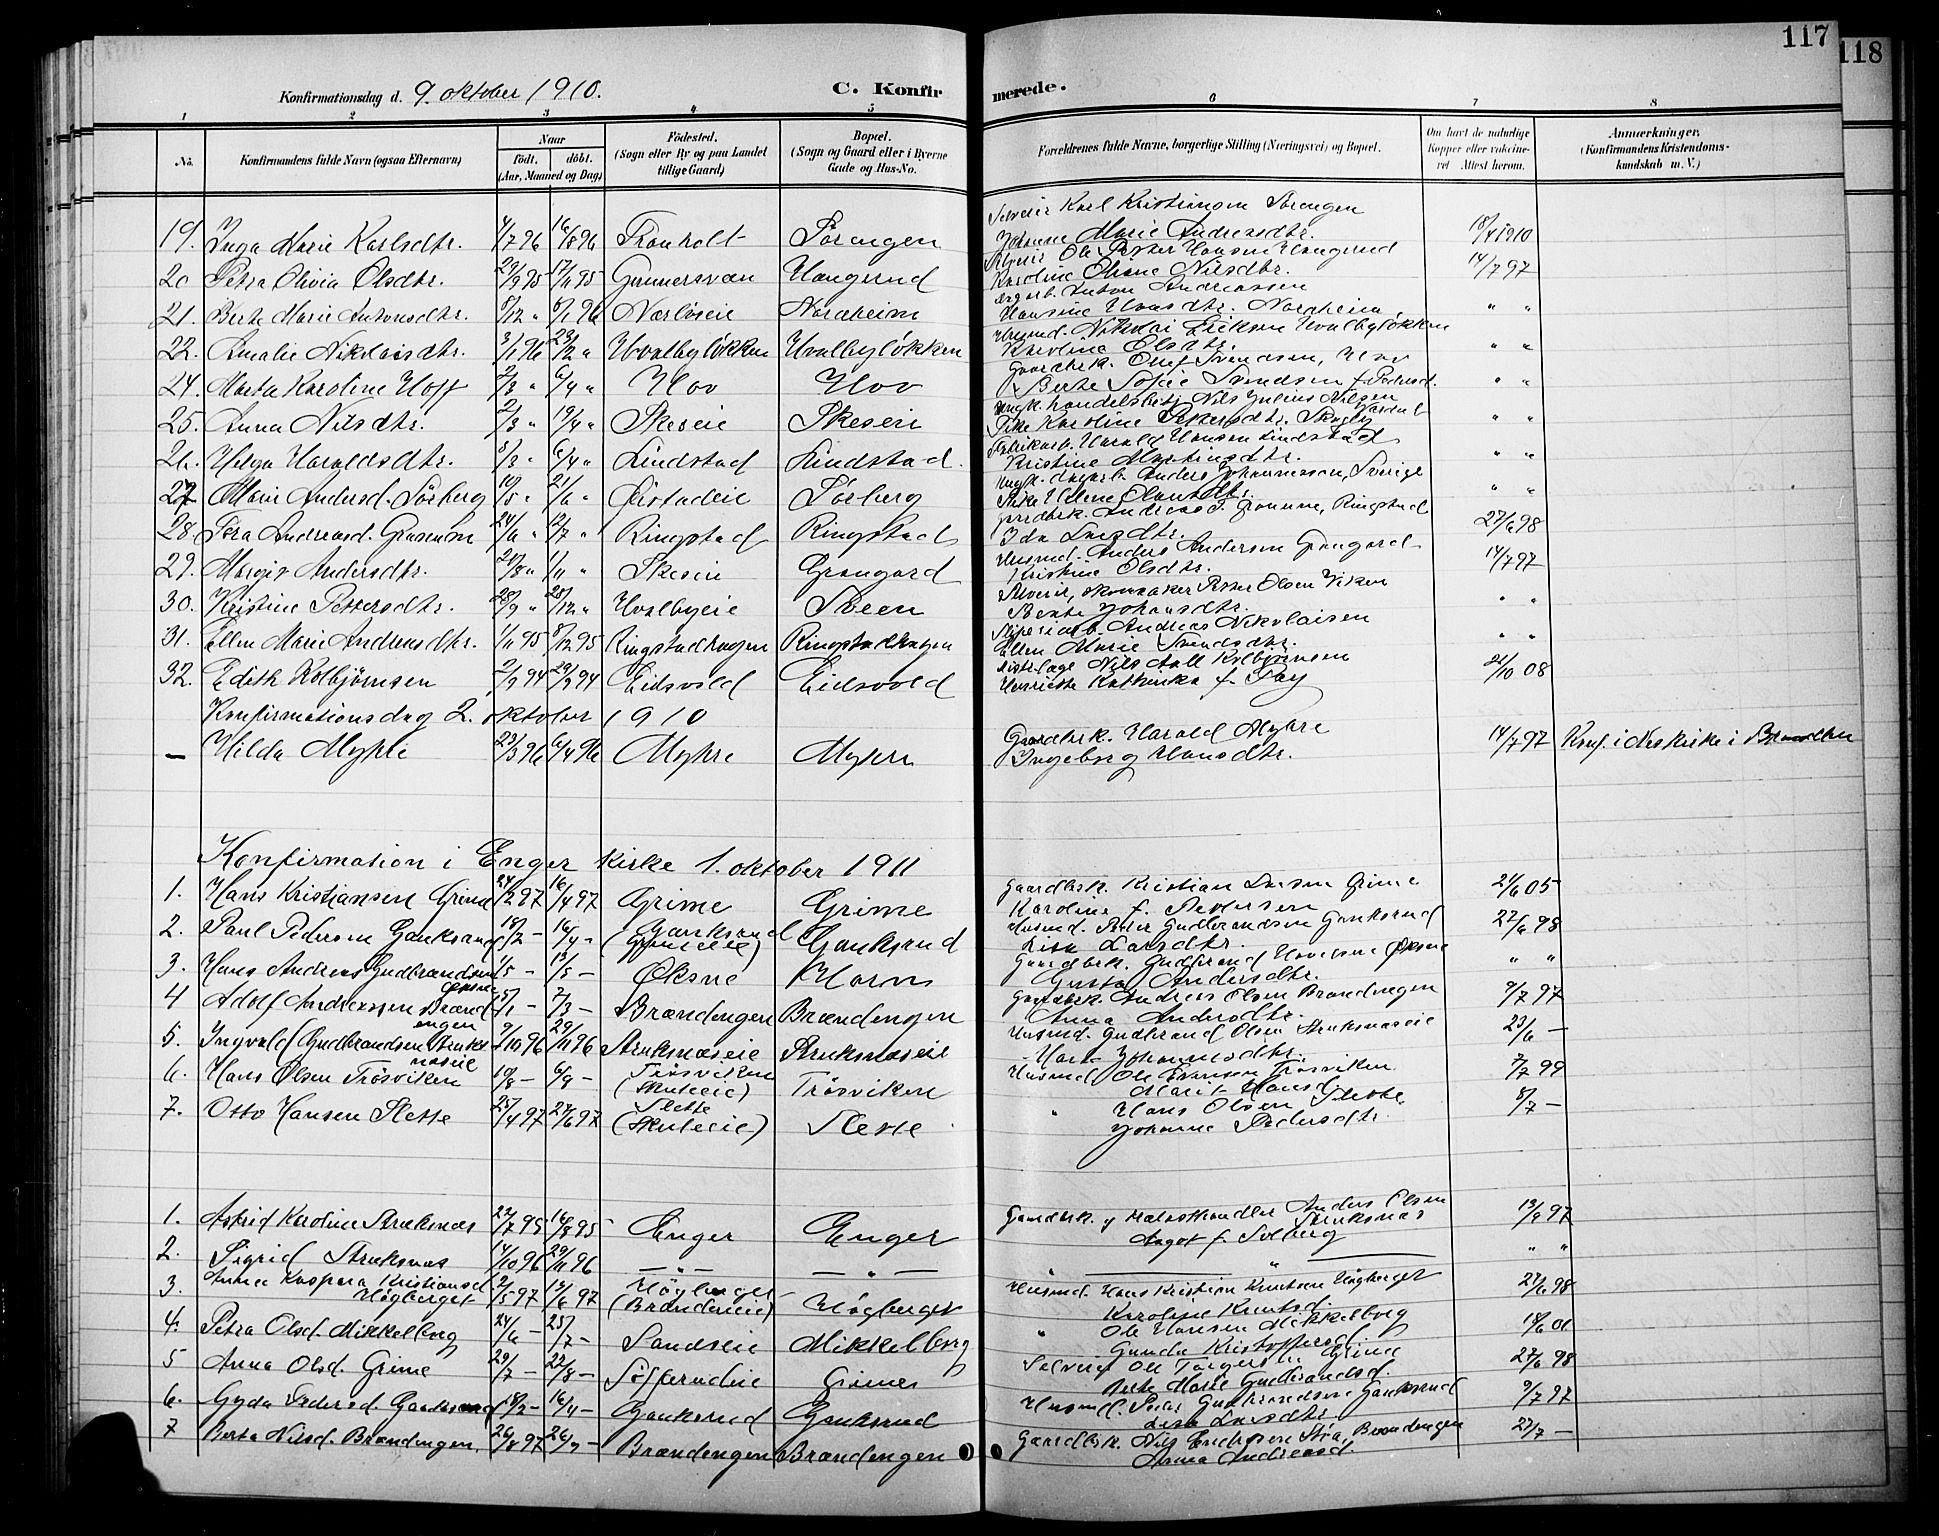 117
118
Konfirmationsdag d. 9. oktober 1910.
C. Konfir
merede.
1 2 3 4 5 6 7 8
No.
Konfirmandens fulde Navn (ogsaa Efternavn)
Naar
født. døbt.
(Aar, Maaned og Dag)
Fødested.
(Sogn eller By og paa Landet
tillige Gaard)
Bopæl.
(Sogn og Gaard eller i Byerne
Gade og Hus-No.
Forældrenes fulde Navne, borgerlige Stilling (Næringsvei) og Bopæl.
Om havt de naturlige
Kopper eller vaccine-
ret Attest herom.
Anmærkninger.
(Konfirmandens Kristendoms-
kundskab m. V.)
19. Inga Marie Karlsdtr. 4/7 96 16/8 96 Tronholt Sörengen
Karl Kristiansen Sörengen
Marie Andreasdtr. 1910
20 Petra Olivia Olsdtr. Gunnersveen Haugerud
Ole Petter Hansen Haugerud
Karoline Oliane Nilsdtr. 14/7 97
21. Berte Marie Antonsdtr. Nærlöseie Nordheim
Anton Andreassen
Hansine Hansdtr. Nordheim " "
22. Amalie Nikolaisdtr. Hvalbylökken Hvalbylökken
Husmd. Nikolai Eriksen Hvalbylökken
Karoline Olsdtr. " "
24. Marta Karoline Hoff Hov Hov
Gaardbrk. Oluf Svendsen, Hov
Berte Sofie Svendsen f. Pedersd. " "
25. Anna Nilsdtr. 2/3 " 19/4 " Skeseie Skeseie
Ungk. handelsbetj. Nils Julius Nilsen
Pike Karoline Pettersdtr. " "
26. Helga Haraldsdtr. 8/3 " 6/4 " Lindstad Lindstad.
Fabrikarb. Harald Hansen Lindstad
Kristine Martinsdtr. " "
27 Marie Andersd. Sörberg Sörberg
Ungk. dagarb. Anders Johannessen, Sverige
Pike Helene Olausdtr. " "
28. Tora Andreasd. 24/6 " 12/7 " Ringstad Ringstad
Gaardbrk. Andreas Ringstad
Ida Larsdtr. 27/6 98
29. Margit Andersdtr. Skeseie Grangard
Husmd. Anders Andersen Grangard
Kristine Olsdtr. 14/7 97
30. Kristine Pettersdtr. 28/9 " 28/12 " Hvalbyeie Sveen
skomaker Petter Olsen Viken
Berthe Johansdtr. " "
31. Ellen Marie Andreasdtr. 1/11 95 8/12 95 Ringstadhagen Ringstadhagen
Sliperiarb. Andreas Nikolaisen
Ellen Marie Svendsdtr. " "
32. Edith Kolbjörnsen 2/3 94 Eidsvold Eidsvold
Nils Aall Kolbjörnsen
Henriette Kathinka f. Fay 21/10 08
Konfirmationsdag 2. oktober 1910
— Hilda Myhre 23/3 96 6/4 96 Myhre Myhre
Gaardbrk. Harald Myhre
Ingeborg Hansdtr. 14/7 97 Konf. i Nes kirke i
Konfirmation i Enger kirke 1. oktober 1911
1. Hans Kristiansen Grime 24/2 97 16/4 97 Grime Grime
Gaardbrk. Kristian Larsen Grime
Karoline f. Pedersen 21/6 05
2. Paul Pedersen Ganksrud 18/2 – 16/4 – Ganksrud
(Grimeeie) Ganksrud
Husmd. Peder Gudbrandsen Ganksrud
Lisa Larsdtr. 27/6 98
3. Hans Andreas Gudbrandsen
Öksne 1/5 – Öksne Horn
Gaardbrk. Gudbrand Hovelsen Öksne
Gusta Andersdtr. " "
4 Adolf Andreassen Brænd
engen 5/1 – 7/3 – Brændengen Brændengen
Gaardbrk. Andreas Olsen Brændengen
Anna Andersdtr. 9/7 97
5. Ingvald Gudbrandsen Struks
næseie 9/10 96 29/11 96 Struksnæseie Struksnæseie
Husmd. Gudbrand Olsen Struksnæseie
Johannesdtr. 23/6 –
6. Hans Olsen Trösviken 10/8 – 6/9 – Trösviken
(Skuteeie) Trösviken
Husmd Ole Evensen Trösviken
Marit Hansd. 7/7 99
7. Otto Hansen Slette 25/4 97 27/6 97 Slette
(Skuteeie) Slette
" Hans Olsen Slette
Johanne Pedersdtr. 8/7 –
1. Astrid Karoline Struksnæs 22/7 95 16/8 95 Enger Enger
Gaardbrk. og Anders Olsen
Struksnæs
Aagot f. Solberg 13/9 97
2. Sigrid Struksnæs 14/10 96 29/11 96 — " — — " —
— " — " "
3. Anna Kaspara Kristiansd.
Högberget 2/5 97 13/6 97 Högberget
(Brændeneie) Högberget
Husmd. Hans Kristian Knutsen Högberget
Karoline Knutsd. 27/6 98
4. Petra Olsd. Mikkelborg 24/6 – 25/7 – Sandseie Mikkelborg
" Ole Hansen Mikkelborg
Gunda Kristoffersd. 18/6 01
5 Anna Olsd. Grime 29/7 – 22/8 – Grimes
Selveier Ole Torgersen Grime
Berte Marie Gudbrandsd. 27/6 98
6. Gyda Pedersd. Ganksrud 18/2 – 16/4 – Ganksrud Ganksrud
Husmd. Peder Gudbrandsen Ganksrud
Lisa Larsdtr. 9/7 97
7 Berta Nilsd. Brændengen 26/8 97 26/9 – Brændengen Brændengen
Gaardbrk. Nils Endresen Brændengen
Anna Andreasd. 27/7 –